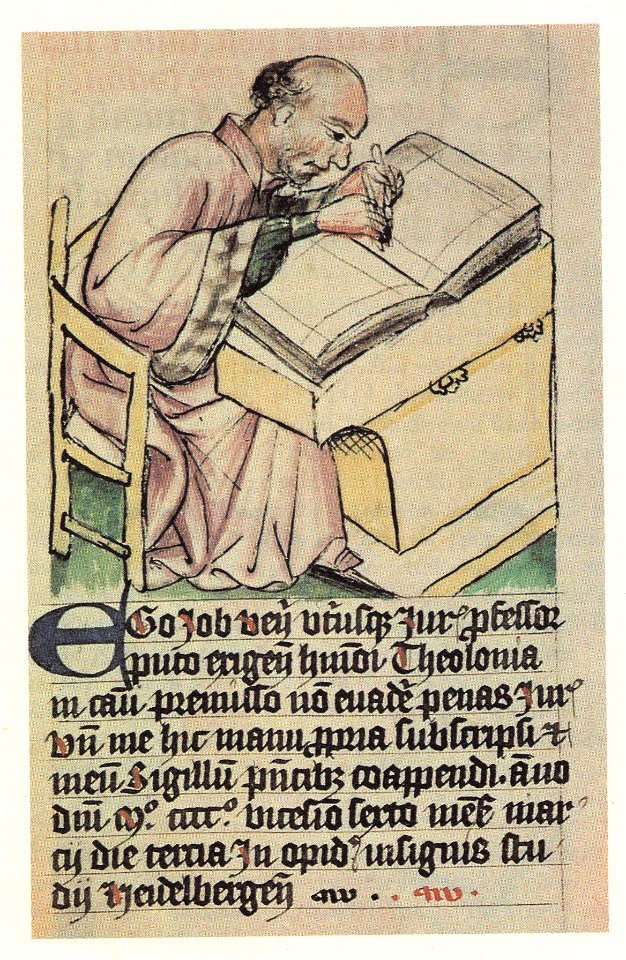 Ego Job veñ vtriusqʒ Jurꝭ ꝓfessor
puto exigeñ hui'modi Theolonia
in causa premisso nō euadē penas Jurꝭ
Vñ me hic manu ꝓpria subscripsi ⁊
meū Sigillū pñtibʒ coappendi. āno
dñi Mº. cccc º. vicesio sexto mēs mar
cij die tercia In opidº insignis stu
dij Heidelbergeñ